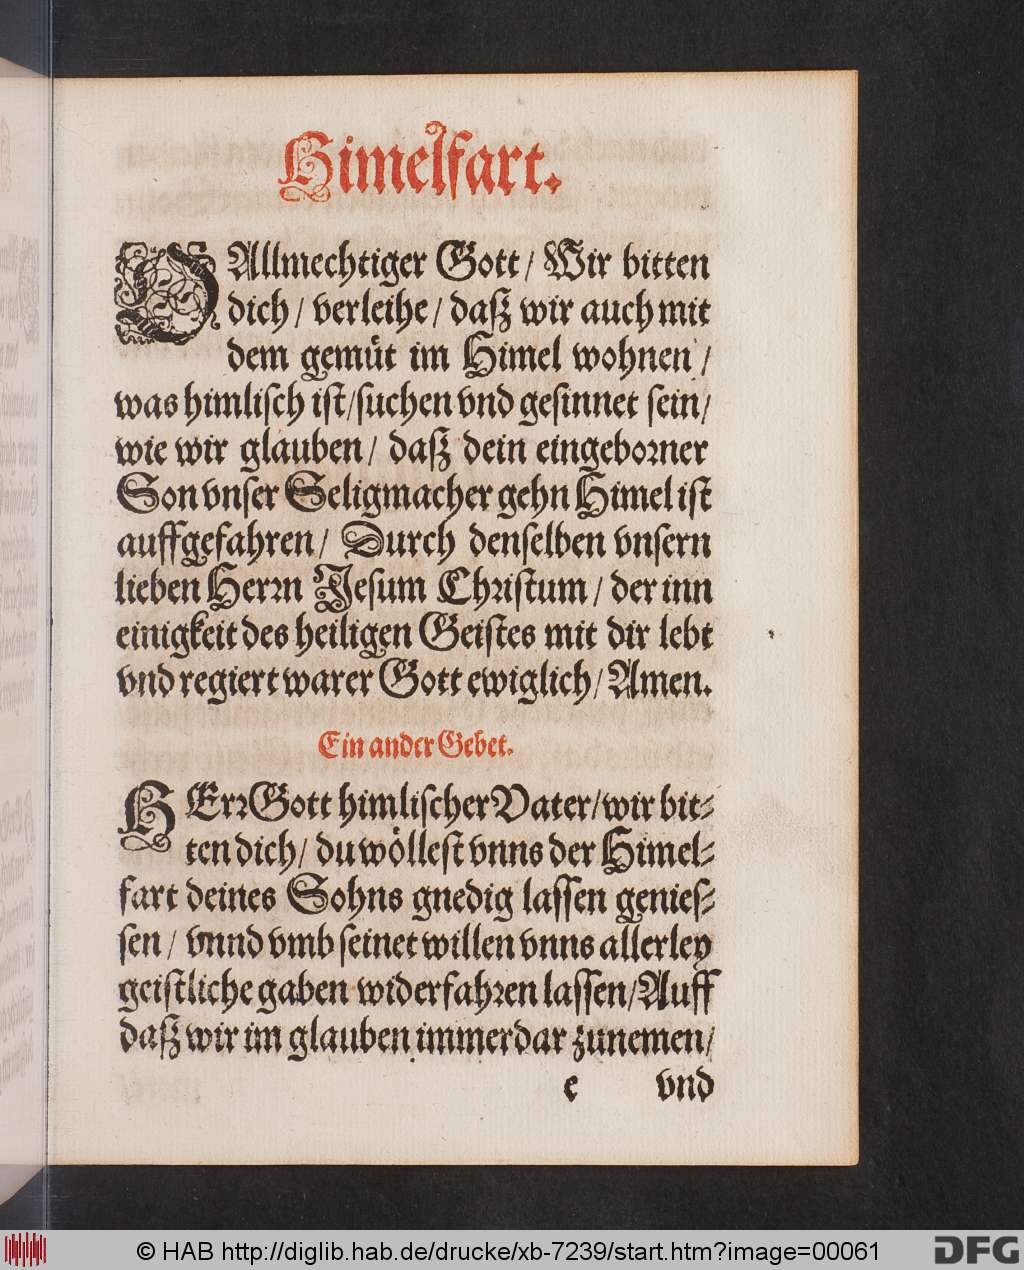 Himelfart.
O Allmechtiger Gott / Wir bitten
dich / verleihe / daß wir auch mit
dem gemüt im Himel wohnen /
was himlisch ist / suchen vnd gesinnet sein /
wie wir glauben / daß dein eingeborner
Son vnser Seligmacher gehn Himel ist
auffgefahren / Durch denselben vnsern
lieben Herrn Jesum Christum / der inn
einigkeit des heiligen Geistes mit dir lebt
vnd regiert warer Gott ewiglich / Amen.
Ein ander Gebet.
HErr Gott himlischer Vater / wir bit-
ten dich / du wöllest vnns der Himel-
fart deines Sohns gnedig lassen genies-
sen / vnnd vmb seinet willen vnns allerley
geistliche gaben widerfahren lassen / Auff
daß wir im glauben immerdar zunemen /
e vnd
© HAB http://diglib.hab.de/drucke/xb-7239/start.htm?image=00061
DFG